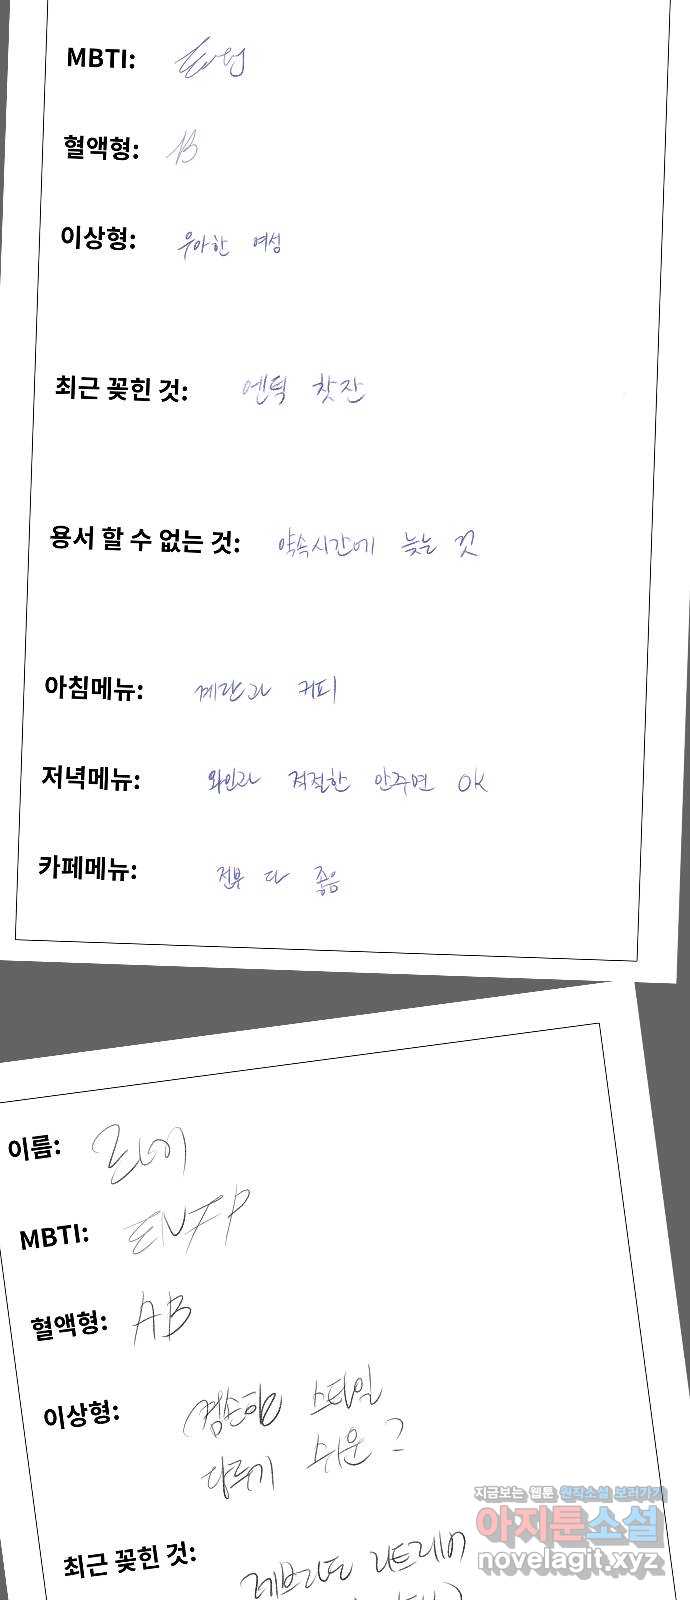 MBTI:
혈액형: B
이상형: 우아한 여성
최근 꽂힌 것: 엔틱 찻잔
용서 할 수 없는 것: 약속시간에 늦는 것
아침메뉴: 계란과 커피
저녁메뉴: 와인과 적절한 안주면 OK
카페메뉴: 전부 다 좋음
이름: 르네
MBTI: ENFP
혈액형: AB
이상형: 겸손한 스타일
다루기 쉬운?
최근 꽂힌 것: 래브라도 리트리버
지금보는 웹툰 원작소설 보러가기
아지툰소설
novelagit.xyz